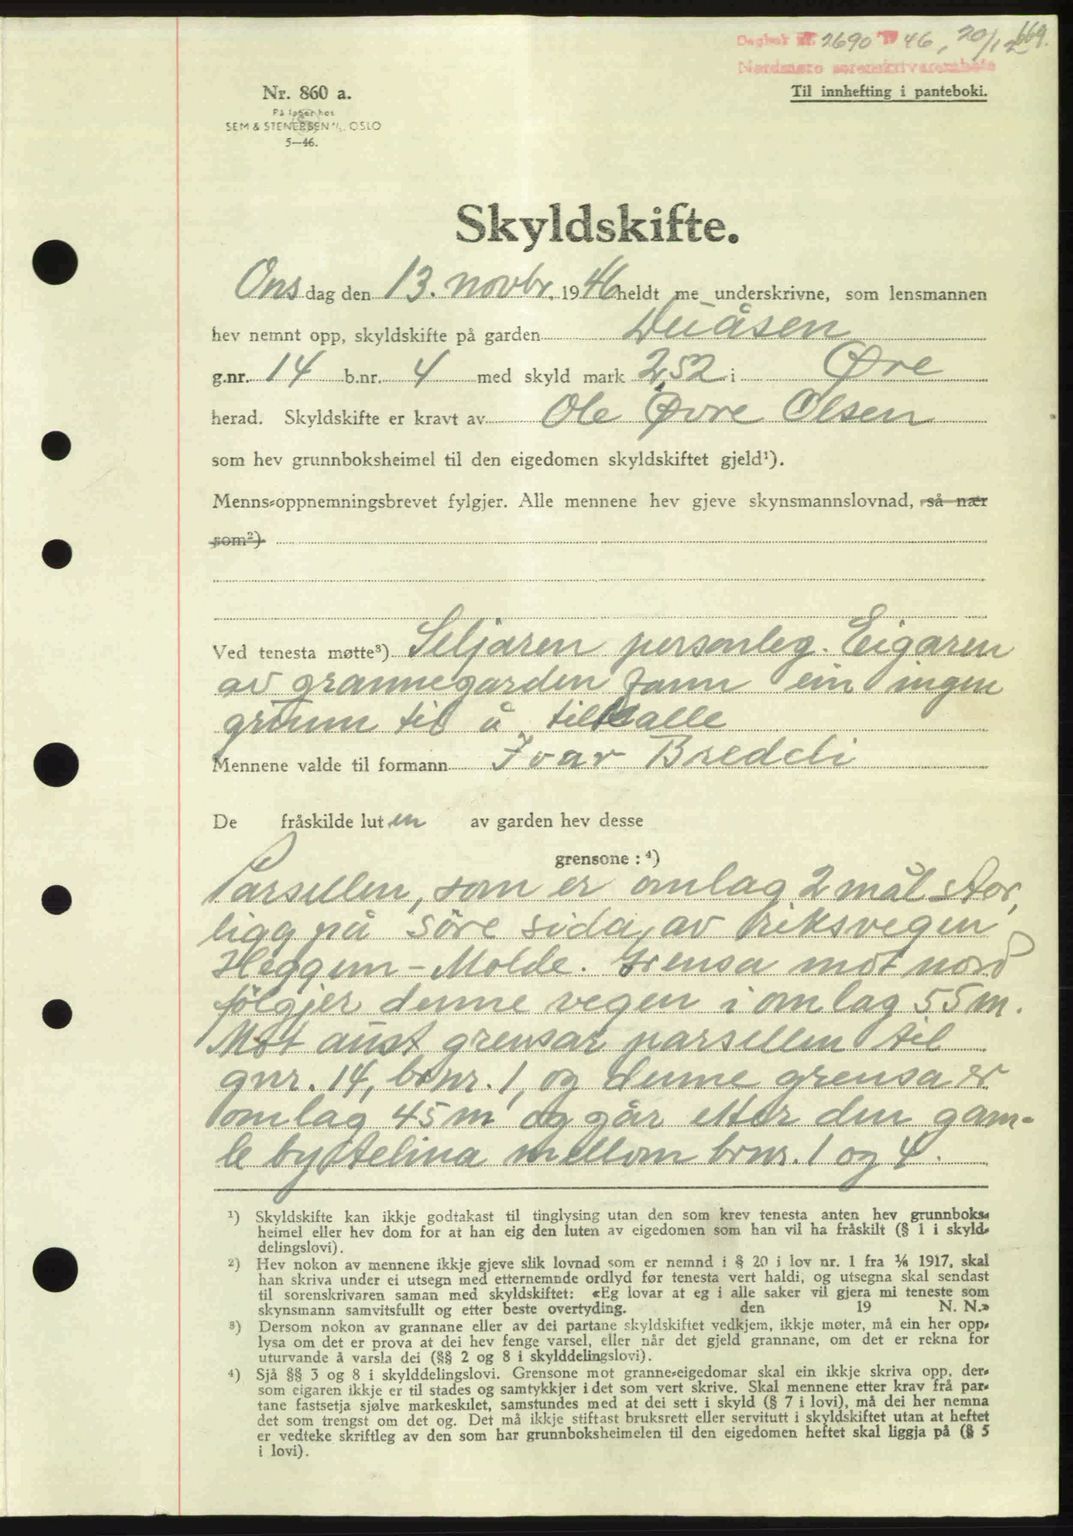 Dagbok nr. 2690 19 46, 20/12 669.
Nordmøre sorenskrivarembete
Nr. 860 a.
Til innhefting i panteboki.
På lager hos
SEM & STENERSEN A/S, OSLO
5—46.
Skyldskifte.
Ons dag den 13. novbr. 1946 heldt me underskrivne, som lensmannen
hev nemnt opp, skyldskifte på garden Duåsen
g.nr. 14 b.nr. 4 med skyld mark 2,52 i Øre
herad. Skyldskifte er kravt av Ole Øvre Olsen
som hev grunnboksheimel til den eigedomen skyldskiftet gjeld¹).
Menns-oppnemningsbrevet fylgjer. Alle mennene hev gjeve skynsmannslovnad, så nær
som²)
Ved tenesta møtte³) Seljaren personleg. Eigaren
av grannegarden fann ein ingen
grunn til å tilkalle
Mennene valde til formann Ivar Bredeli
De fråskilde luten av garden hev desse
grensone : ⁴)
Parsellen, som er omlag 2 mål stor,
ligg på søre sida av riksvegen
Heggem - Molde. Grensa mot nord
følgjer denne vegen i omlag 55 m.
Mot aust grensar parsellen til
gnr. 14, brnr. 1, og denne grensa er
omlag 45 m og går etter den gam-
le bytelina mellom brnr. 1 og 4.
¹) Skyldskifte kan ikkje godtakast til tinglysing utan den som krev tenesta anten hev grunnboks-
heimel eller hev dom for at han eig den luten av eigedomen som han vil ha fråskilt (§ 1 i skyld-
delingslovi).
²) Hev nokon av mennene ikkje gjeve slik lovnad som er nemnd i § 20 i lov nr. 1 fra ⅙ 1917, skal
han skriva under ei utsegn med etternemnde ordlyd før tenesta vert haldi, og utsegna skal sendast
til sorenskrivaren saman med skyldskiftet: «Eg lovar at eg i alle saker vil gjera mi teneste som
skynsmann samvitsfullt og etter beste overtyding. den 19 N. N.»
³) Dersom nokon av grannane eller av dei partane skyldskiftet vedkjem, ikkje møter, må ein her opp-
lysa om det er prova at dei hev fenge varsel, eller når det gjeld grannane, om det er rekna for
uturvande å varsla dei (§§ 2 og 8 i skylddelingslovi).
⁴) Sjå §§ 3 og 8 i skylddelingslovi. Grensone mot granne-eigedomar skal ein ikkje skriva opp, der-
som eigaren ikkje er til stades og samtykkjer i det som vert skrive. Skal mennene etter krav frå par-
tane fastsetja sjølve markeskilet, samstundes med at dei sett i skyld (§ 7 i lovi), må dei her nemna
det som trengst om det og. Det må ikkje stiftast bruksrett eller servitutt i skyldskiftet utan at heftet
er vedteke skriftleg av den som har grunnboksheimelen til den eigedomen heftet skal liggja på (§ 5
i lovi).